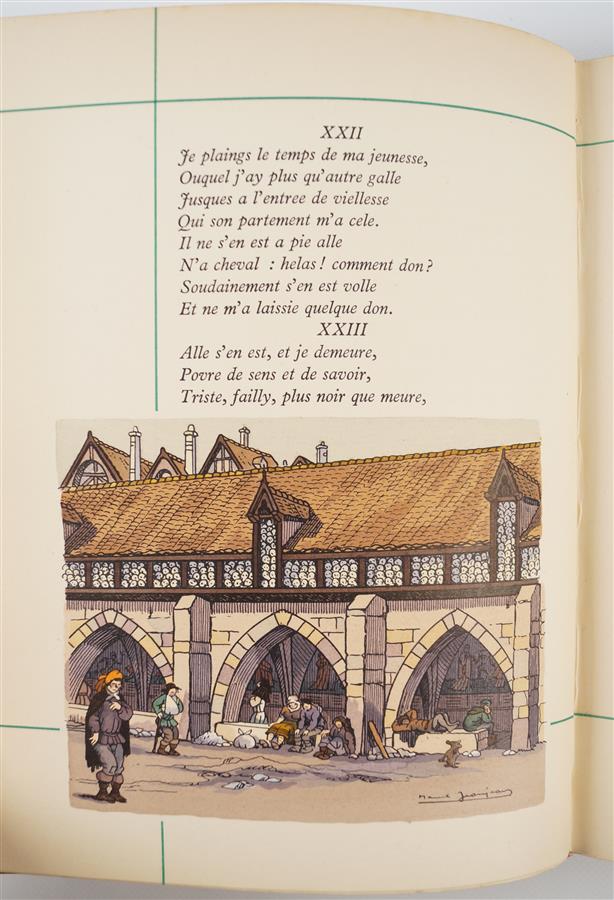 XXII
Je plaings le temps de ma jeunesse,
Ouquel j'ay plus qu'autre galle
Jusques a l'entree de viellesse
Qui son partement m'a cele.
Il ne s'en est a pie alle
N'a cheval : helas! comment don?
Soudainement s'en est volle
Et ne m'a laissie quelque don.
XXIII
Alle s'en est, et je demeure,
Povre de sens et de savoir,
Triste, failly, plus noir que meure,